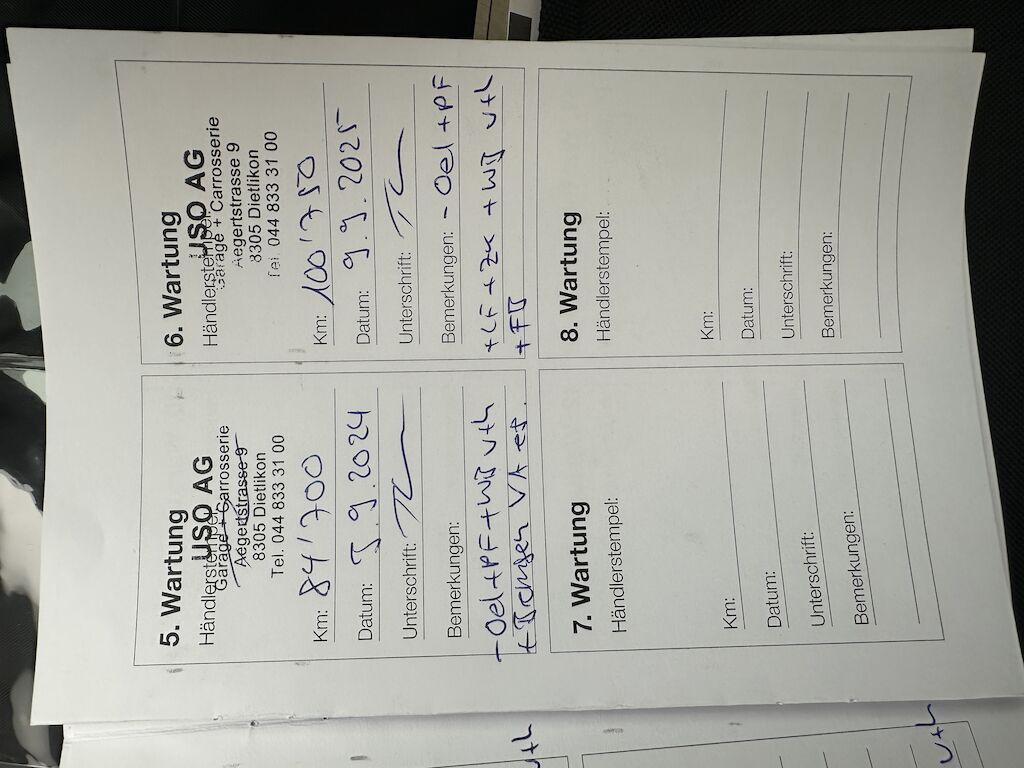 5. Wartung
Händlerstempel:
USO AG
Garage + Carrosserie
Aegertstrasse 9
8305 Dietlikon
Tel. 044 833 31 00
Km: 84'700
Datum: 5.9.2024
Unterschrift:
Bemerkungen:
- Oel + PF + WB uth
+ Bremsen VA ers.
6. Wartung
Händlerstempel:
USO AG
Garage + Carrosserie
Aegertstrasse 9
8305 Dietlikon
Tel. 044 833 31 00
Km: 100'750
Datum: 9.9.2025
Unterschrift:
Bemerkungen: - Oel + PF
+ LF + ZK + WB uth
+ FB
7. Wartung
Händlerstempel:
Km:
Datum:
Unterschrift:
Bemerkungen:
8. Wartung
Händlerstempel:
Km:
Datum:
Unterschrift:
Bemerkungen:
uth
uth